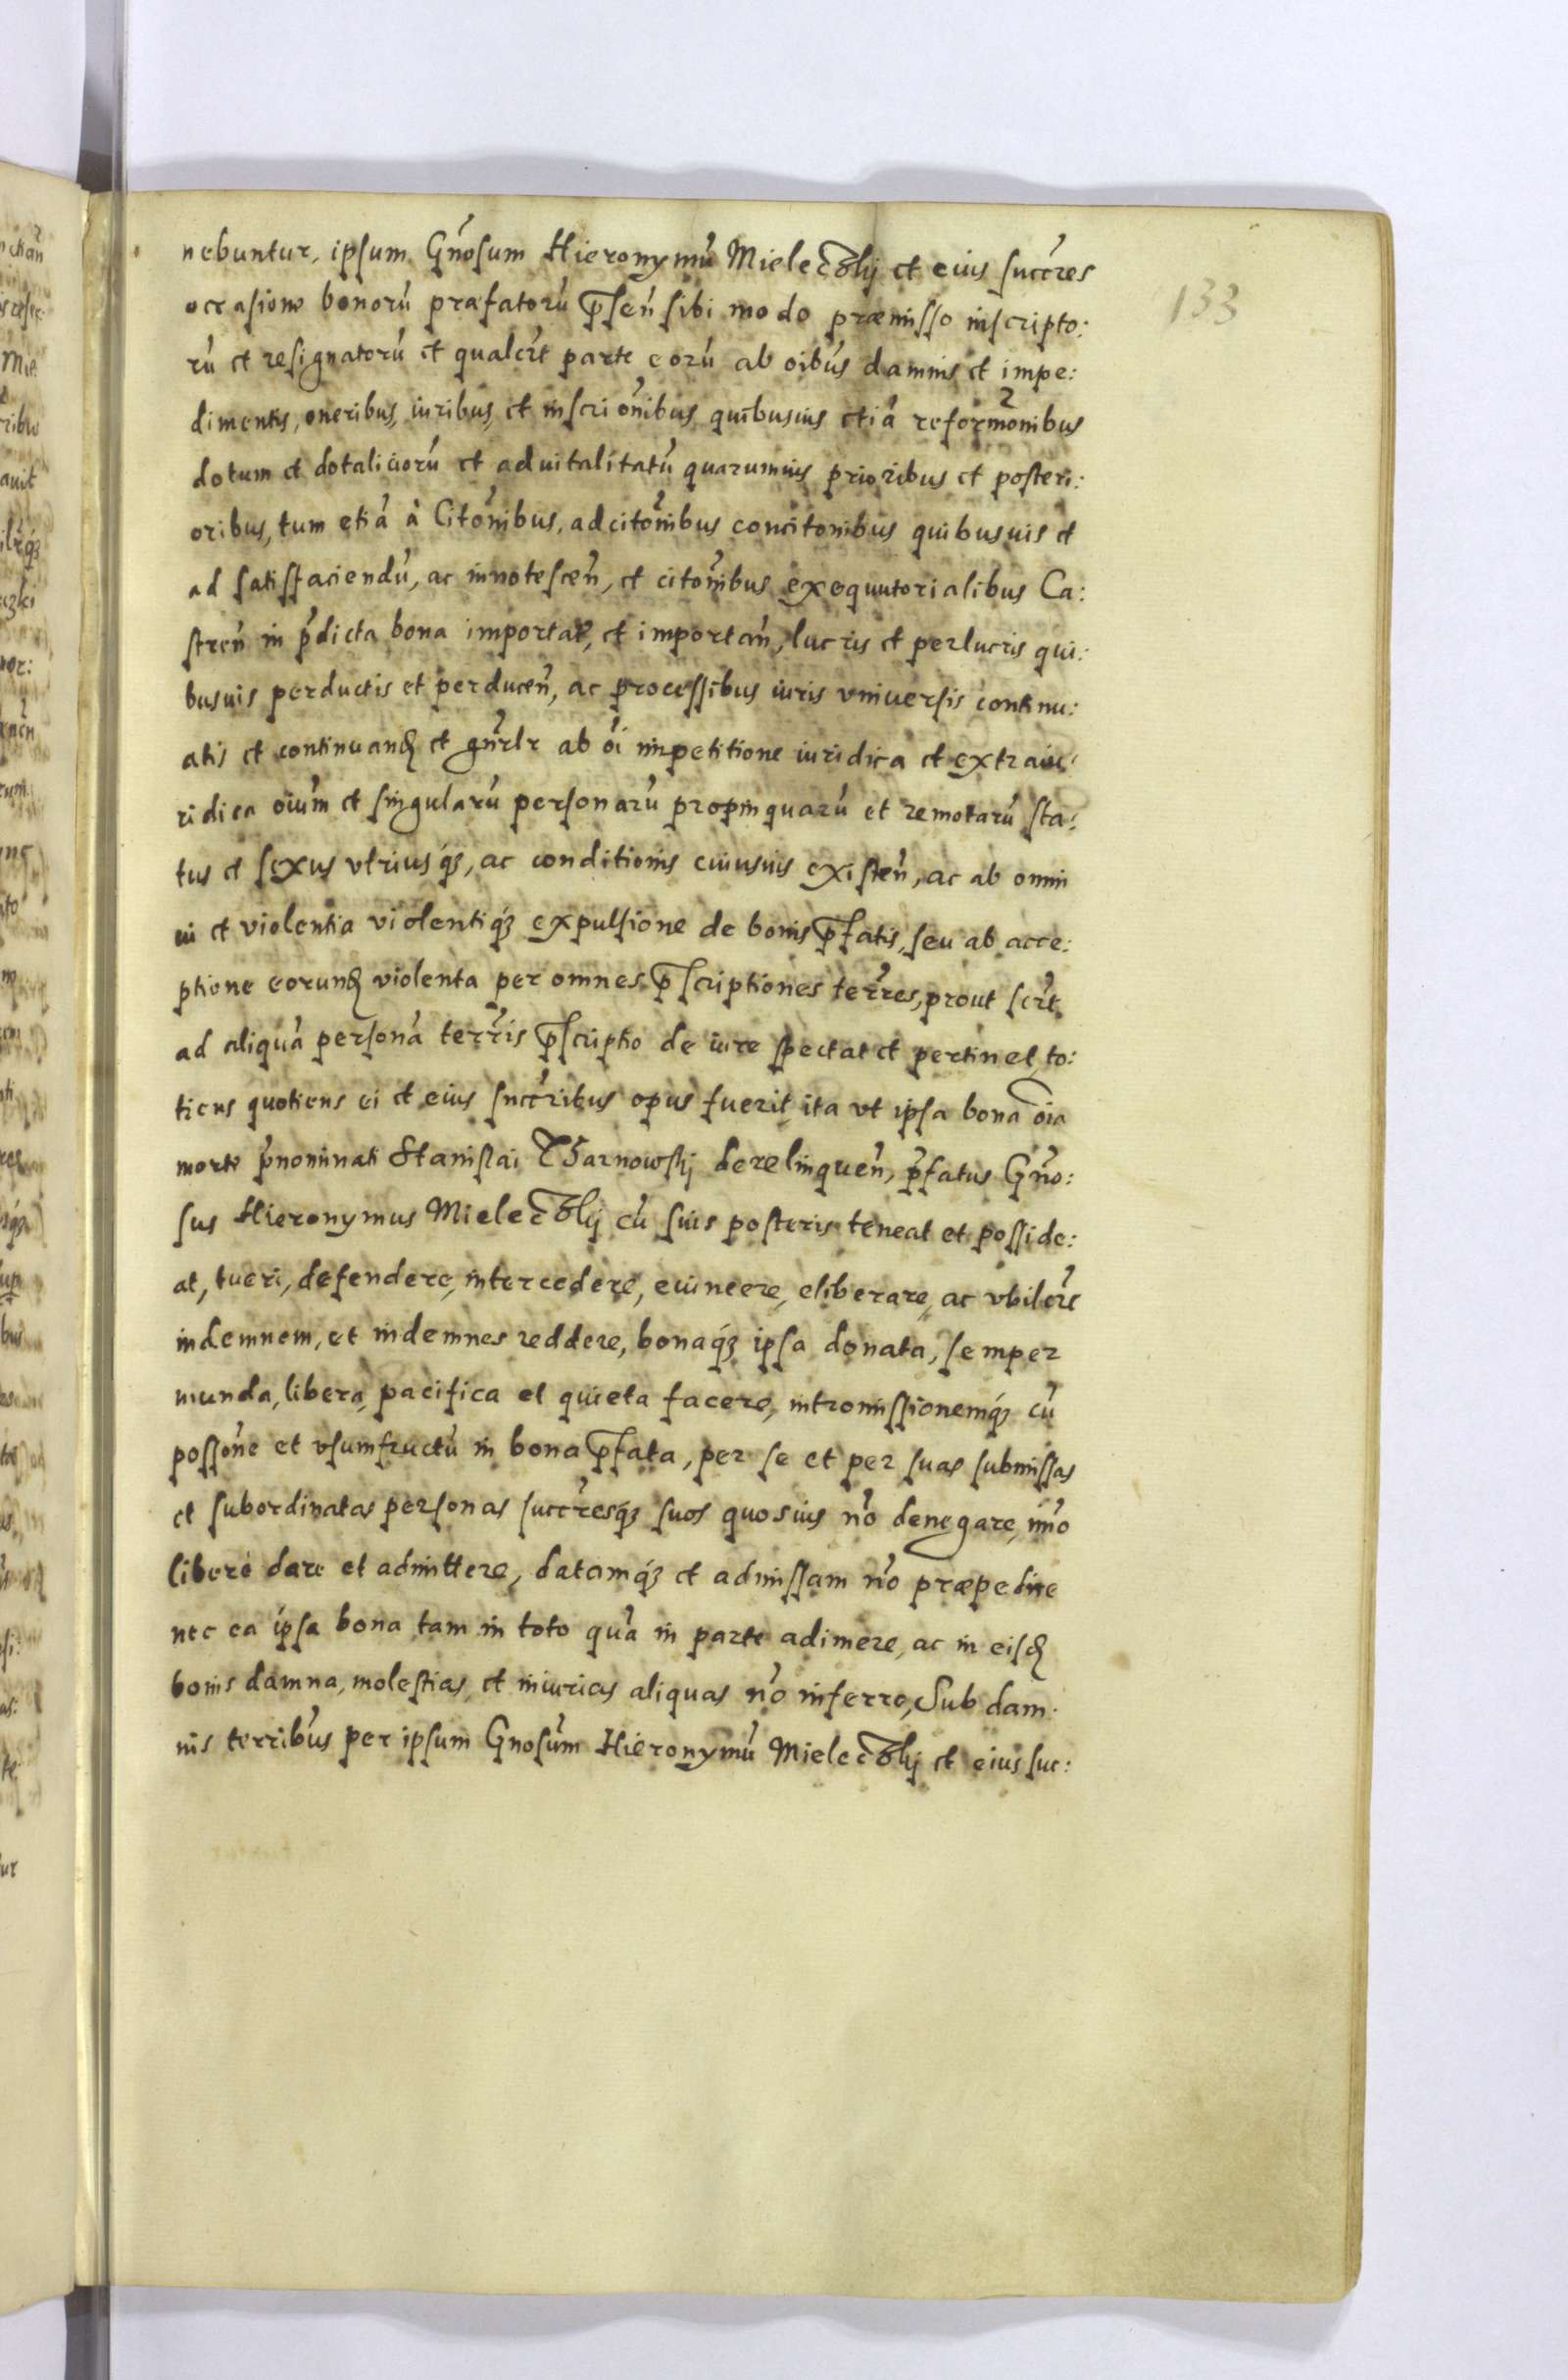 133
nebuntur, ipsum Gñosum Hieronymũ Mielecʒkij et eius succr̃es
occasione bonorũ præfatorũ p̃señ sibi modo præmisso inscripto:
rũ et resignatorũ et qualcr̃t parte eorũ ab oĩbus damnis et impe:
dimentis, oneribus, iuribus, et inscriõnibus quibusuis etiã reformõnibus
dotum et dotaliciorũ et aduitalitatũ quarumuis prioribus et posteri:
oribus, tum etiã à Citõnibus, adcitõnibus concitonibus quibusuis et
ad satisfaciendũ, ac innotesceñ, et citõnibus exequutorialibus Ca:
streñ in p̃dicta bona importat, et importañ, lucris et perlucris qui:
busuis perductis et perduceñ, ac processibus iuris vniuersis continu:
atis et continuanđ et gñrlr ab oĩ impetitione iuridica et extraiu:
ridica oiũm et singularũ personarũ propinquarũ et remotarũ sta:
tus et sexus vtriusq́ʒ, ac conditionis cuiusuis existeñ, ac ab omni
ui et violentia violentiq́ʒ expulsione de bonis p̃fatis, seu ab acce:
ptione eorunđ violenta per omnes p̃scriptiones terr̃es, prout scr̃t
ad aliquã personã terr̃is p̃scriptio de iure spectat et pertinet, to:
tiens quotiens ei et eius succr̃ibus opus fuerit, ita vt ipsa bona oĩa
morte p̃nominati Stanislai Tharnowskij derelinqueñ, p̃fatus Gño:
sus Hieronymus Mielecʒkij cũ suis posteris teneat et posside:
at, tueri, defendere, intercedere, euincere, eliberare, ac vbilcr̃t
indemnem, et indemnes reddere, bonaq́ʒ ipsa donata, semper
munda, libera, pacifica et quieta facere, intromissionemq́ʒ cũ
possõne et vsumfructũ in bona p̃fata, per se et per suas submissas
et subordinatas personas succr̃esq́ʒ suos quosuis nõ denegare, imõ
liberè dare et admittere, datamq́ʒ et admissam nõ præpedire
nec ea ipsa bona tam in toto quã in parte adimere, ac in eisđ
bonis damna, molestias, et iniurias aliquas nõ inferre, Sub dam:
nis terribũs per ipsum Gnosũm Hieronymũ Mielecʒkij et eius suc: